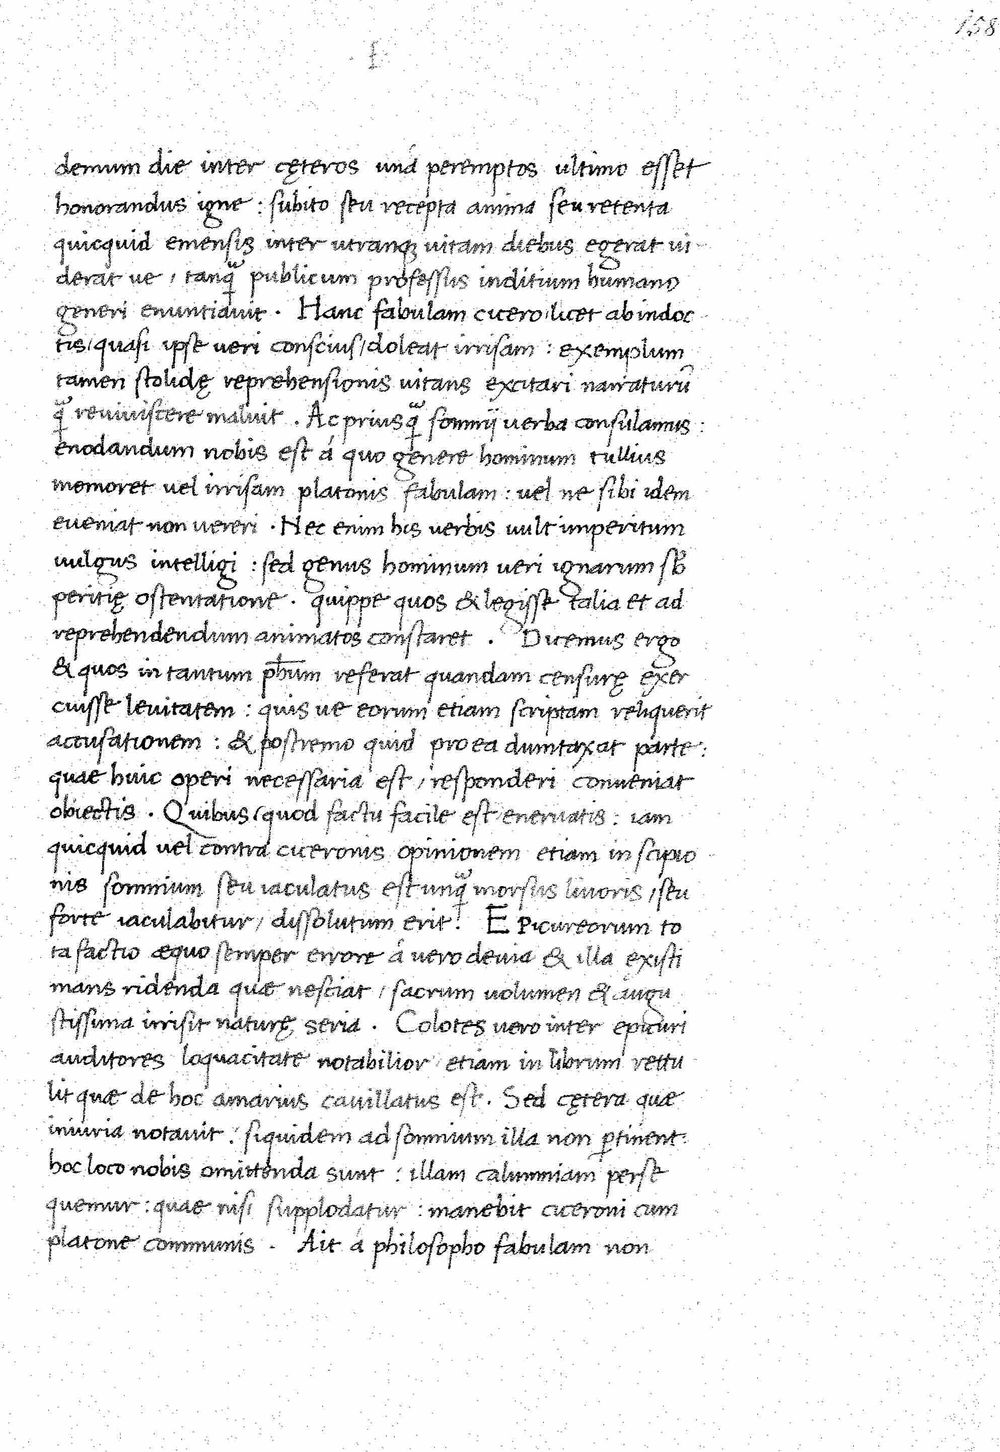 158
demum die inter cęteros unâ peremptos ultimo esset
honorandus igne : subito seu recepta anima seu retenta
quicquid emensis inter utranqꝫ uitam diebus egerat ui-
derat ue / tanꝗ̃ publicum professus inditium humano
generi enuntiauit . Hanc fabulam cicero / licet ab indoc-
tis / quasi ipse ueri conscius / doleat irrisam : exemplum
tamen stolidę reprehensionis uitans excitari narraturũ
ꝗ̃ reuiuiscere maluit . Ac priusꝗ̃ somnij uerba consulamus :
enodandum nobis est á quo genere hominum tullius
memoret uel irrisam platonis fabulam : uel ne sibi idem
eueniat non uereri . Nec enim his uerbis uult imperitum
uulgus intelligi : sed genus hominum ueri ignarum sƀ
peritię ostentatione . quippe quos & legisse talia et ad
reprehendendum animatos constaret . Dicemus ergo
& quos in tantum ph̃um referat quandam censurę exer
cuisse leuitatem : quis ue eorum etiam scriptam reliquerit
accusationem : & postremo quid pro ea dumtaxat parte :
quae huic operi necessaria est / responderi conueniat
obiectis . Quibus / quod factu facile est / eneruatis : iam
quicquid uel contra ciceronis opinionem etiam in scipio-
nis somnium seu iaculatus est unꝗ̃ morsus liuoris / seu
forte iaculabitur / dissolutum erit ! Epicureorum to
ta factio æquo semper errore á uero deuia & illa existi
mans ridenda quæ nesciat / sacrum uolumen & augu
stissima irrisit naturę seria . Colotes uero inter epicuri
auditores loquacitate notabilior / etiam in librum rettu
lit quæ de hoc amarius cauillatus est . Sed cętera quæ
iniuria notauit : siquidem ad somnium illa non ꝑtinent :
hoc loco nobis omittenda sunt : illam calumniam perse
quemur : quae nisi supplodatur : manebit ciceroni cum
platone communis . Ait á philosopho fabulam non